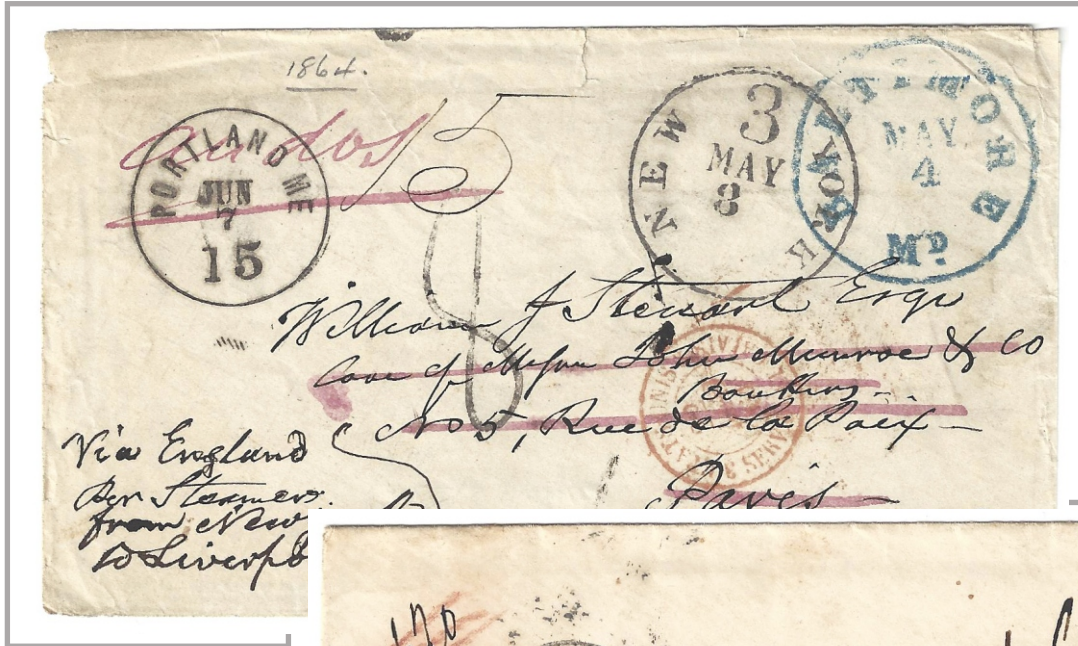 1864.
au dos
15
PORTLAND ME
JUN
7
15
NEW YORK
3
MAY
8
BALTIMORE
MAY
4
MD
8
William J Stewart Esqr
Care of Messrs John Munroe & Co
Bankers
No 5, Rue de la Paix
Paris
Via England
per Steamers
from New
to Liverpo
170